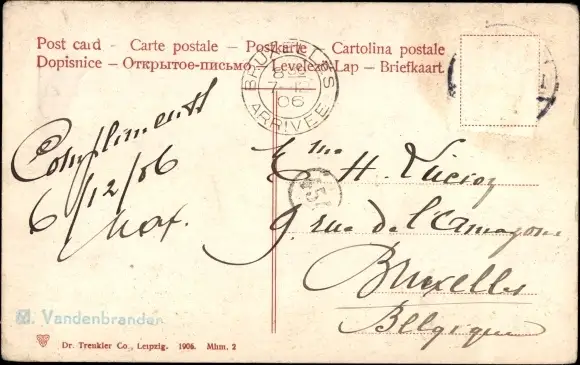 Post card - Carte postale - Postkarte - Cartolina postale
Dopisnice - Открытое-письмо - Levelező-Lap - Briefkaart.
BRUXELLES
8
7
06
ARRIVÉE
Compliments
6/12/06
Max.
H.
54
9. rue de l'Amazone
Bruxelles
Belgique
M. Vandenbranden
Dr. Trenkler Co., Leipzig. 1906. Mhm. 2